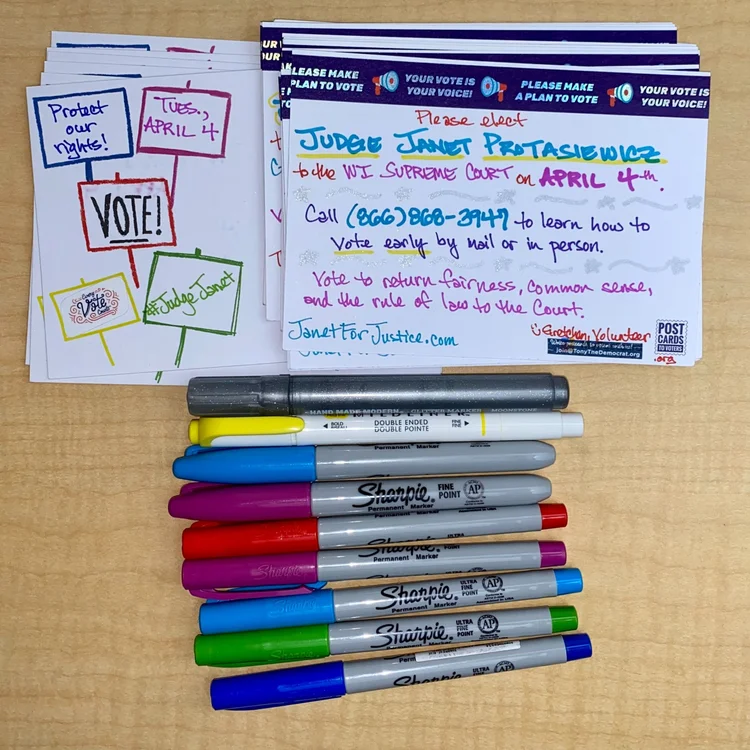 Protect
our
rights!
TUES.,
APRIL 4
VOTE!
Vote
#JudgeJanet
PLEASE MAKE
A PLAN TO VOTE
YOUR VOTE IS
YOUR VOICE!
PLEASE MAKE
A PLAN TO VOTE
YOUR VOTE IS
YOUR VOICE!
Please elect
JUDGE JANET PROTASIEWICZ
to the WI SUPREME COURT on APRIL 4th.
Call (866)868-3947 to learn how to
Vote early by mail or in person.
Vote to return fairness, common sense,
and the rule of law to the Court.
JanetForJustice.com
Gretchen, Volunteer
join@TonyTheDemocrat.org
POST
CARDS
TO VOTERS
.org
HAND MADE MODERN • GLITTER MARKER • MOONSTONE
BOLD
DOUBLE ENDED
DOUBLE POINTE
FINE
FINE
Permanent Marker
Sharpie.
FINE
POINT
AP
Permanent Marker
Sharpie
ULTRA
Permanent Marker
Sharpie
Sharpie
Permanent Marker
Sharpie.
Permanent Marker
ULTRA
FINE
POINT
AP
Sharpie.
Permanent Marker
ULTRA
FINE
POINT
AP
Sharpie
ULTRA
FINE
POINT
AP